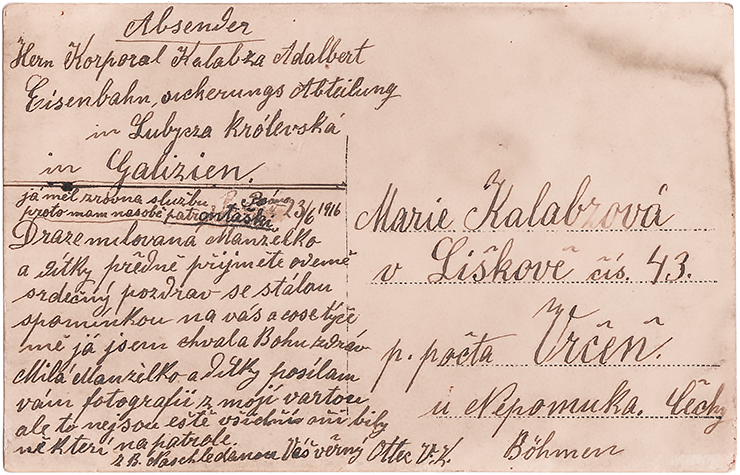 Absender
Hern Korporal Kalabza Adalbert
Eisenbahn, sicherungs Abteilung
in Lubycza Królevská
in Galizien.
já měl zrovna službu
proto mam nasobě patrontašku
Psáno 23/6 1916
Draze milovaná Manželko
a dítky předně přijmete odemě
srdečný pozdrav se stálou
spomínkou na vás a cose týče
mě já jsem chvala Bohu zdráv
Milá Manželko a dítky posílam
vám fotografii z mojí vartou
ale to nejsou eště všichni oni bily
někteří na patrole.
z B. Naschledanou Váš věrny Ottec V. K.
Marie Kalabzová
v Liškově čís. 43.
p. počta Vrčeň.
u Nepomuka. Čechy
Böhmen